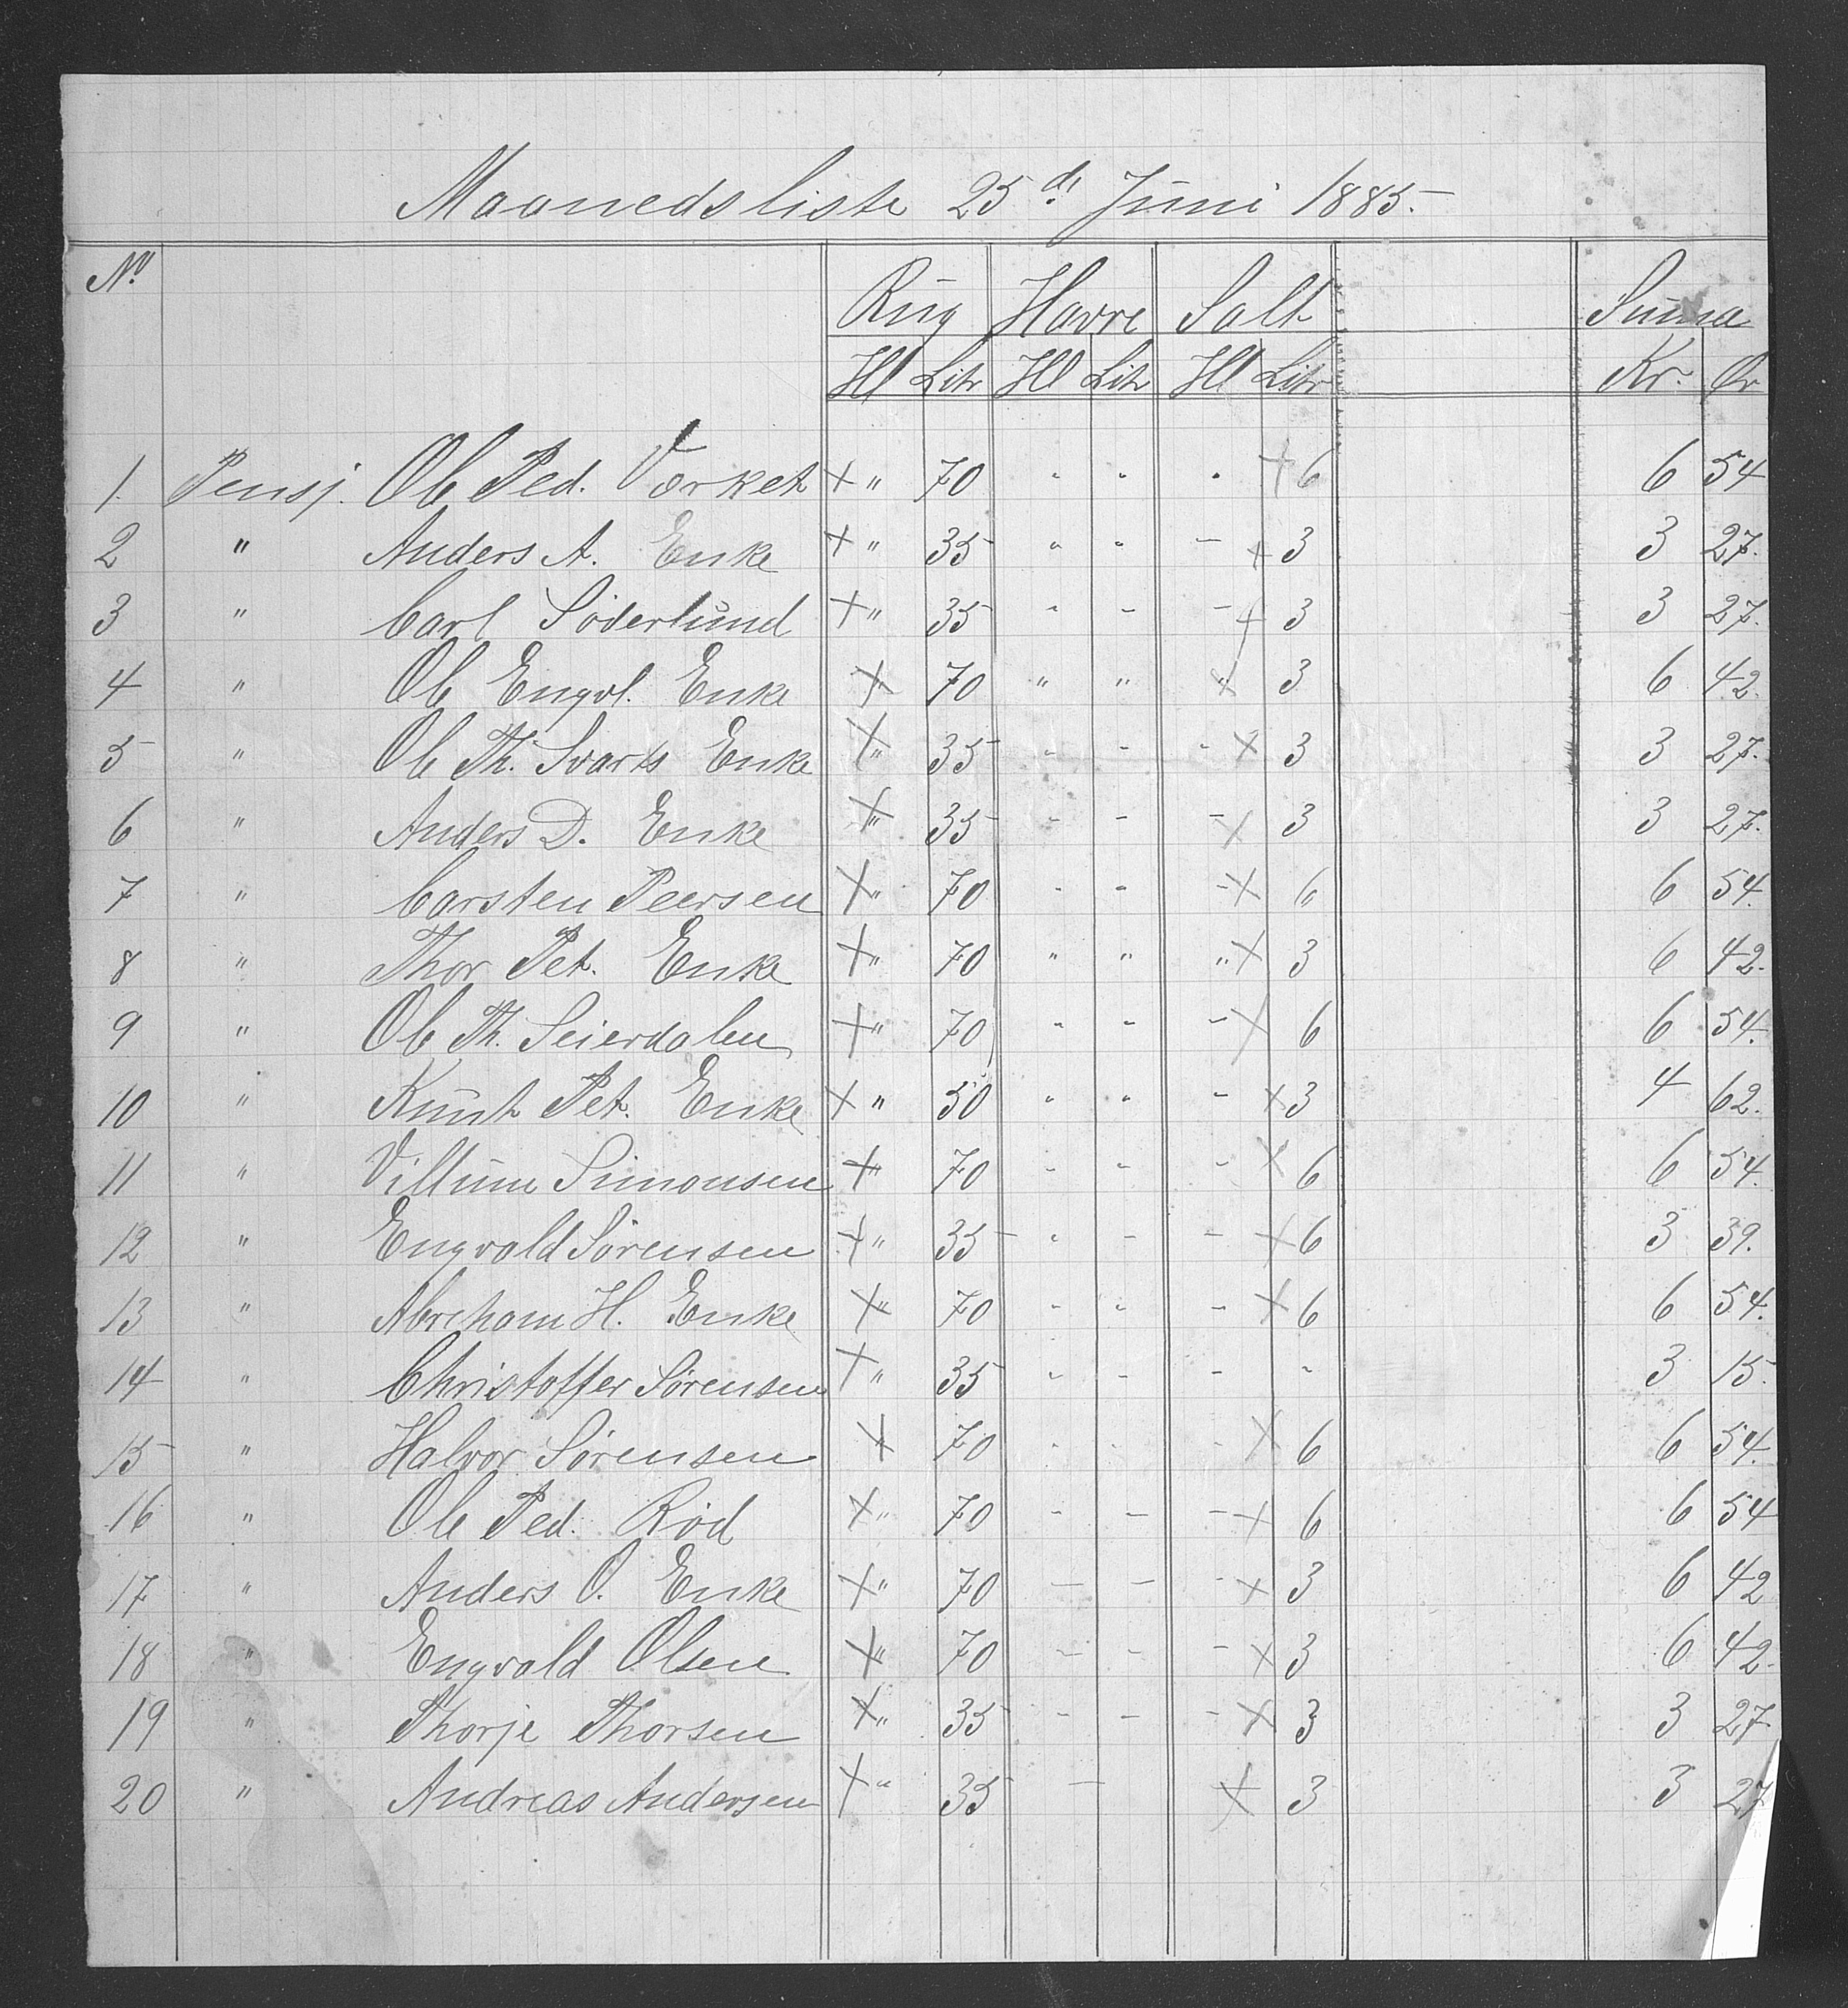 Maanedsliste 25d. Juni 1885.
No. Rug Havre Salt Summa
Hl Litr Hl Litr Hl Litr Kr. Ør
1. Pensj. Ole Ped. Værket × " 70 " " " × 6 6 54
2 " Anders A. Enke × " 35 " " - × 3 3 27.
3 " Carl Söderlund × " 35 " - - × 3 3 27.
4 " Ole Engvl. Enke × " 70 " " " × 3 6 42.
5 " Ole Th. Svarts Enke × " 35 - - - × 3 3 27.
6 " Anders D. Enke × " 35 - - - × 3 3 27.
7 " Carsten Peersen × " 70 - - - × 6 6 54.
8 " Thor Pet. Enke × " 70 " " " × 3 6 42.
9 " Ole Th. Seierdalen × " 70 - - - × 6 6 54.
10 " Knut Pet. Enke × " 50 " " - × 3 4 62.
11 " Villum Simonsen × " 70 - - - × 6 6 54.
12 " Engvald Sørensen × " 35 - - - × 6 3 39.
13 " Abreham H. Enke × " 70 - - - × 6 6 54.
14 " Christoffer Sørensen × " 35 - - - - 3 15.
15 " Halvor Sørensen × " 70 - - - × 6 6 54.
16 " Ole Ped. Rød × " 70 - - - × 6 6 54
17 " Anders O. Enke × " 70 - - - × 3 6 42
18 " Engvald Olsen × " 70 - - - × 3 6 42.
19 " Thorje Thorsen × " 35 - - - × 3 3 27.
20 " Andreas Andersen × " 35 - × 3 3 27